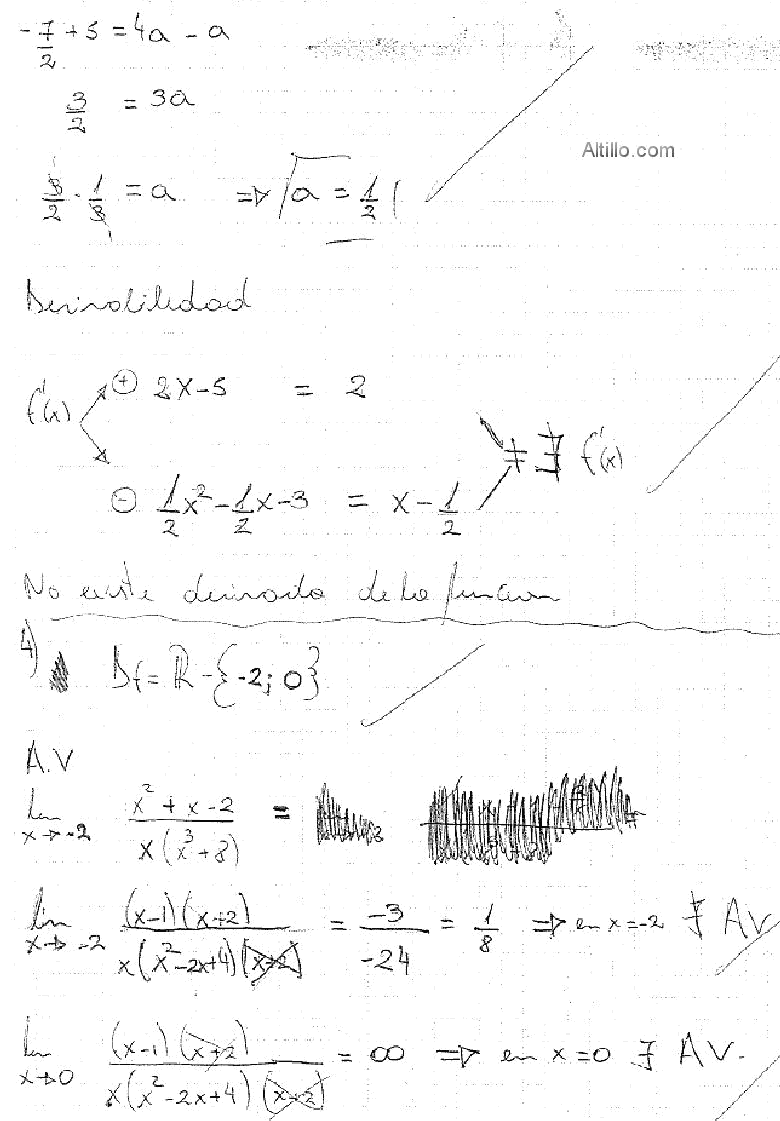 -7/2 + 5 = 4a - a
3/2 = 3a
Altillo.com
3/2 · 1/3 = a ⇒ a = 1/2
Derivabilidad
f'(x)
⊕ 2x-5 = 2
≠ ∄ f'(x)
⊖ 1/2 x² - 1/2 x - 3 = x - 1/2
No existe derivada de la funcion
4) Df = ℝ - {-2; 0}
A.V
lim x→-2 (x² + x - 2)/(x(x³+8)) =
lim x→-2 (x-1)(x+2)/(x(x²-2x+4)(x+2)) = -3/-24 = 1/8 ⇒ en x=-2 ∄ AV
lim x→0 (x-1)(x+2)/(x(x²-2x+4)(x+2)) = ∞ ⇒ en x=0 ∃ AV.